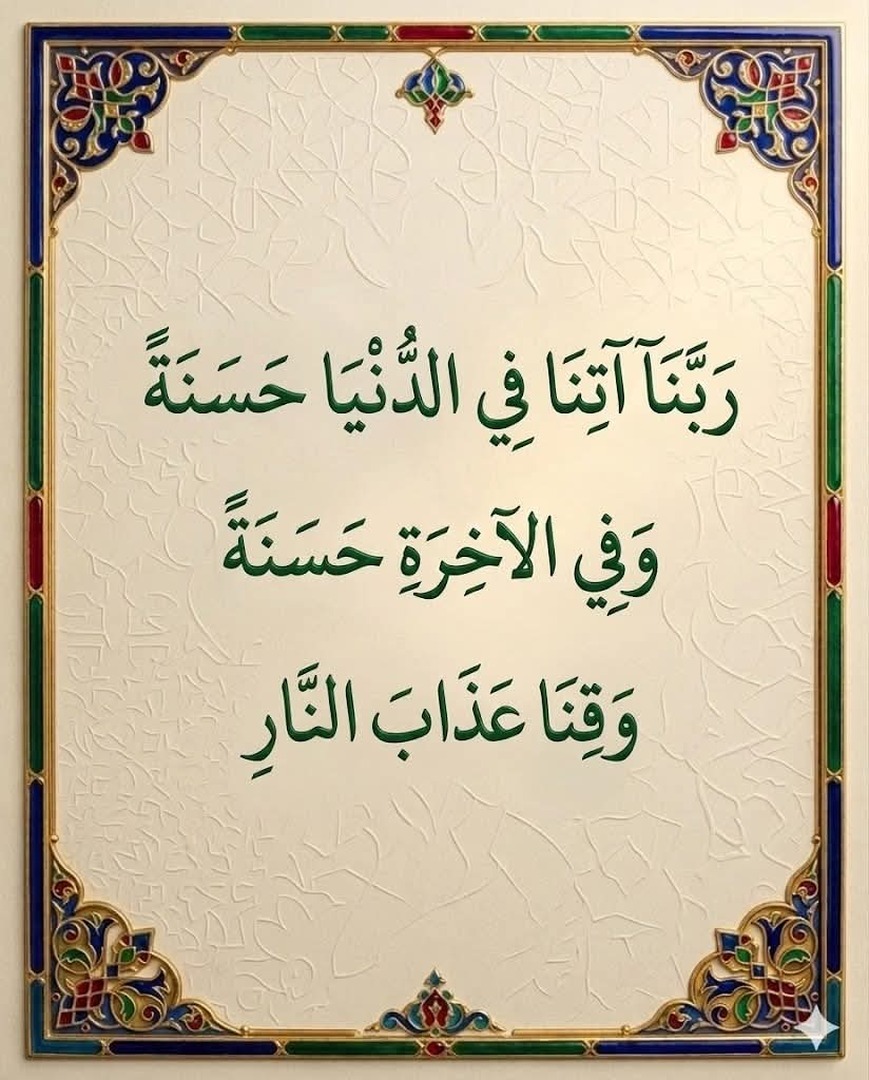 رَبَّنَآ آتِنَا فِي الدُّنْيَا حَسَنَةً
وَفِي الآخِرَةِ حَسَنَةً
وَقِنَا عَذَابَ النَّارِ